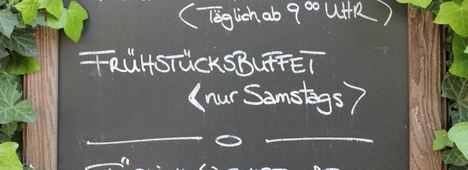 <Täglich ab 9⁰⁰ UHR>
FRÜHSTÜCKSBUFFET
<nur Samstags>